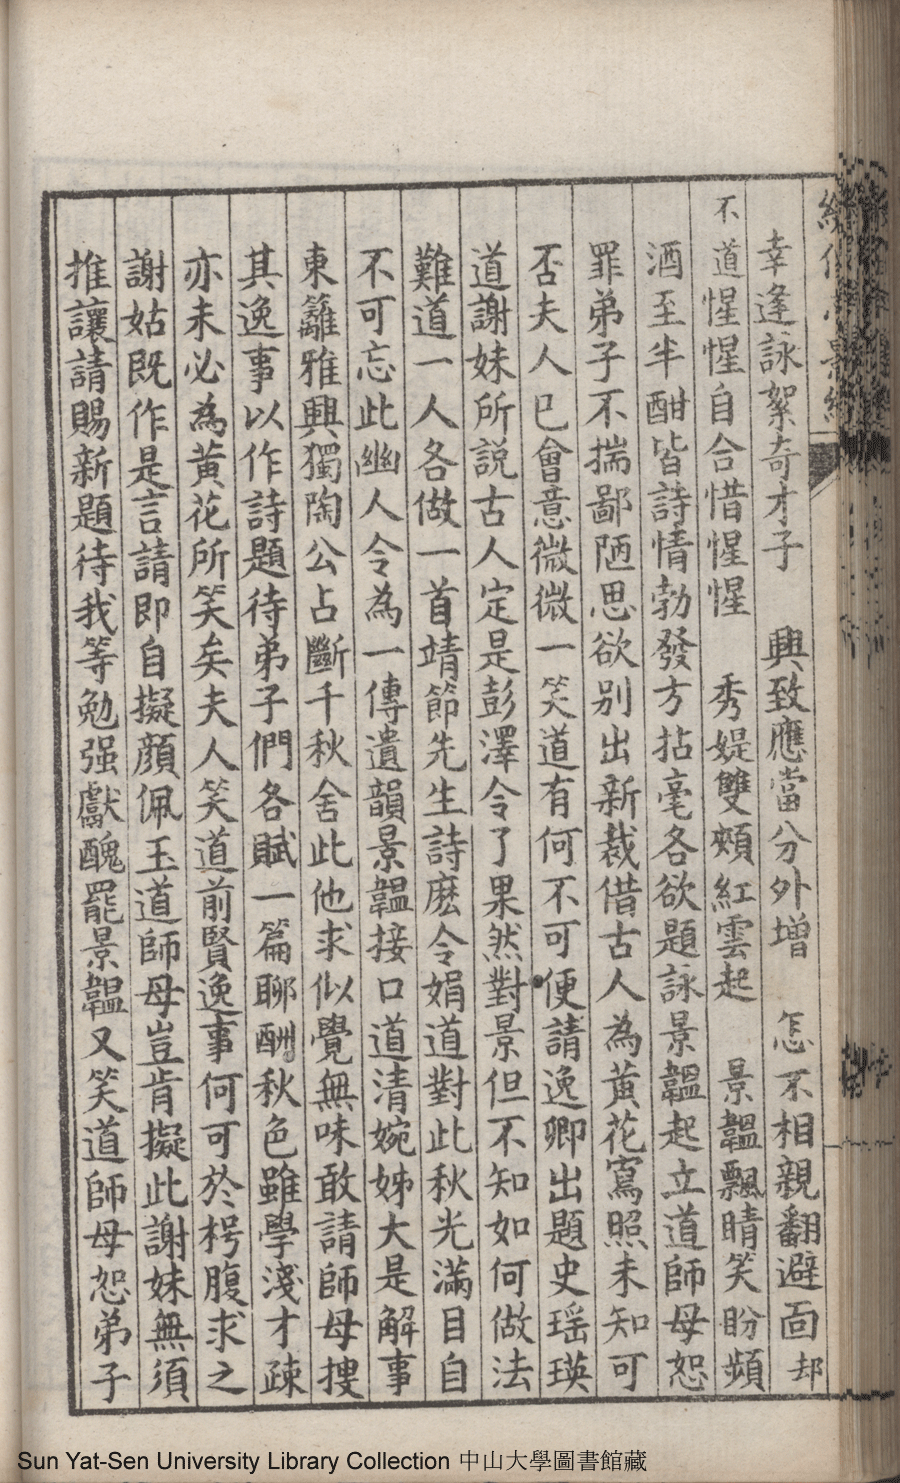 幸逢詠絮奇才子　興致應當分外增　怎不相親翻避面却
不道惺惺自合惜惺惺　秀媞雙頰紅雲起　景韞飄睛笑盼頻
酒至半酣皆詩情勃發方拈毫各欲題詠景韞起立道師母恕
罪弟子不揣鄙陋思欲别出新裁借古人為黃花寫照未知可
否夫人已會意微微一笑道有何不可便請逸卿出題史瑶瑛
道謝妹所說古人定是彭澤令了果然對景但不知如何做法
難道一人各做一首靖節先生詩麽令娟道對此秋光滿目自
不可忘此幽人令為一傳遺韻景韞接口道清婉姊大是解事
東籬雅興獨陶公占斷千秋舍此他求似覺無味敢請師母搜
其逸事以作詩題待弟子們各賦一篇聊酬秋色雖學淺才疎
亦未必為黃花所笑矣夫人笑道前賢逸事何可於枵腹求之
謝姑既作是言請即自擬顏佩玉道師母豈肯擬此謝妹無須
推讓請賜新題待我等勉强獻醜罷景韞又笑道師母恕弟子
Sun Yat-Sen University Library Collection 中山大學圖書館藏